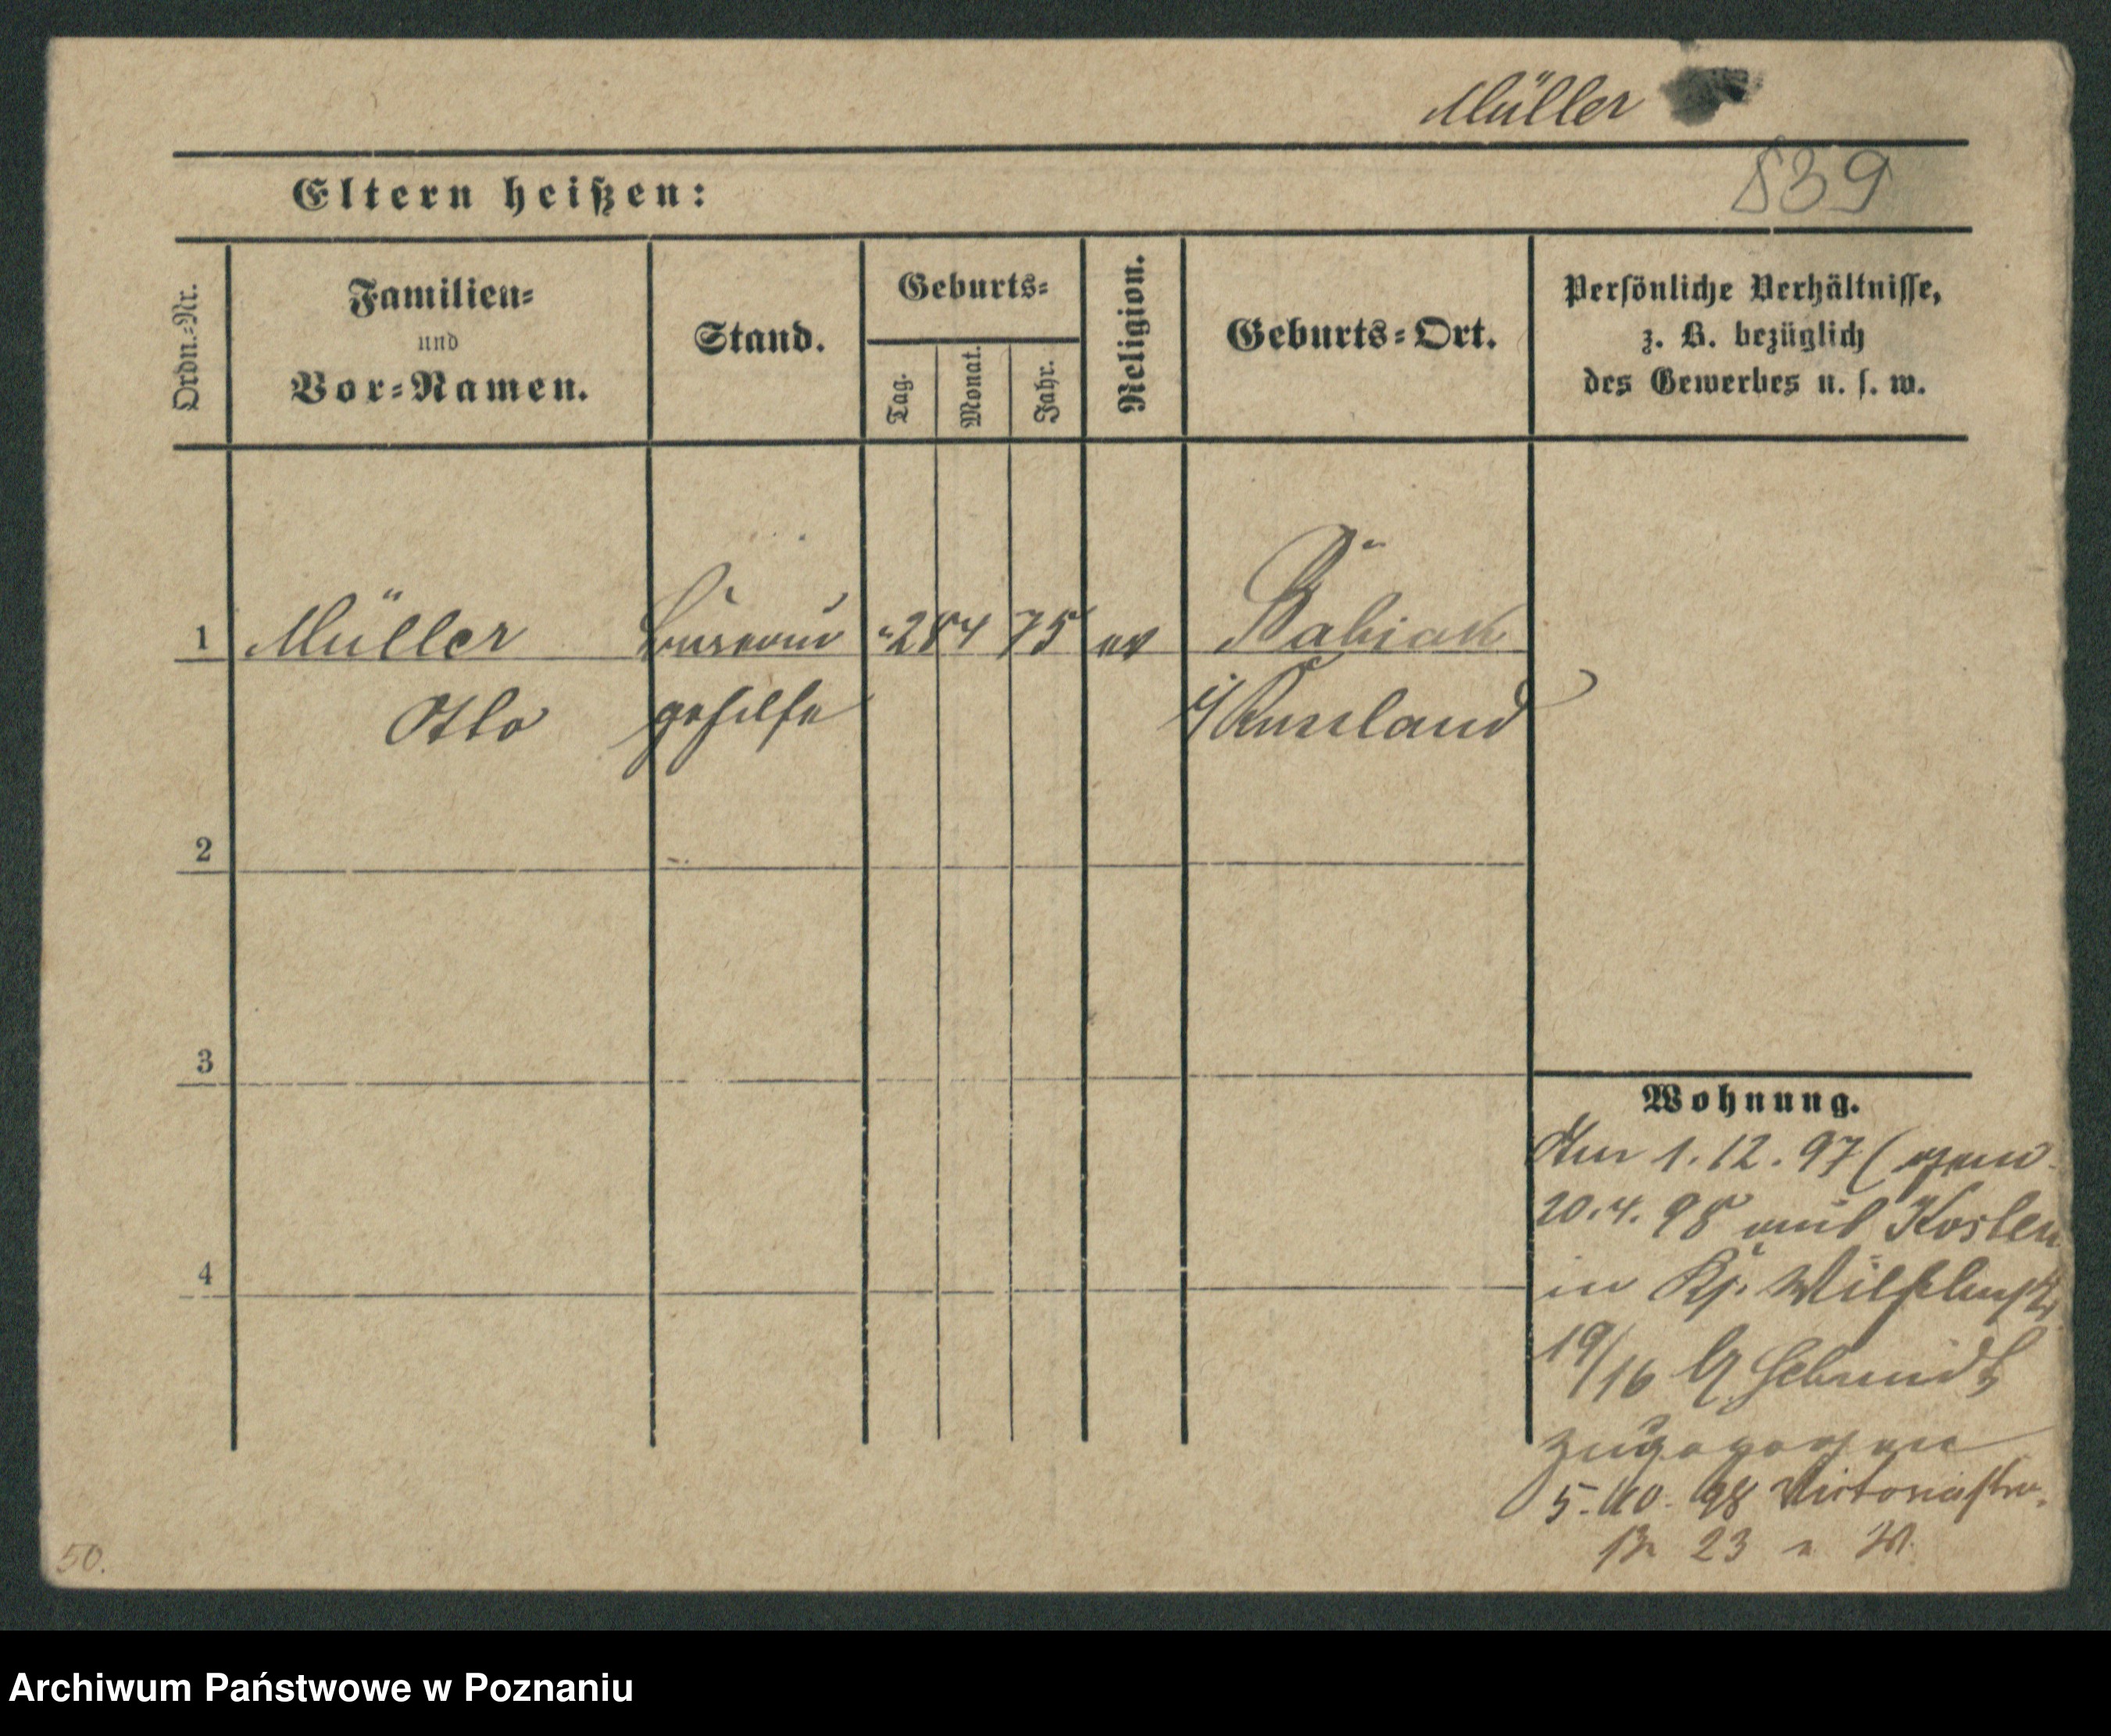 Müller
839
Eltern heißen:
Ordn.-Nr.
Familien-
und
Vor-Namen.
Stand.
Geburts-
Tag.
Monat.
Jahr.
Religion.
Geburts-Ort.
Persönliche Verhältnisse,
z. B. bezüglich
des Gewerbes u. s. w.
1 Müller Bureau 28 4 75 ev Babiak
Otto gehilfe i/ Russland
2
3
4
Wohnung.
Am 1. 12. 97 (gem
20. 4. 98 aus Kosten
in Kr. Wilhelmstr
19/16 b/ Schmidt
zugezogen
5. 10. 98 Victoriastr.
23
50.
Archiwum Państwowe w Poznaniu